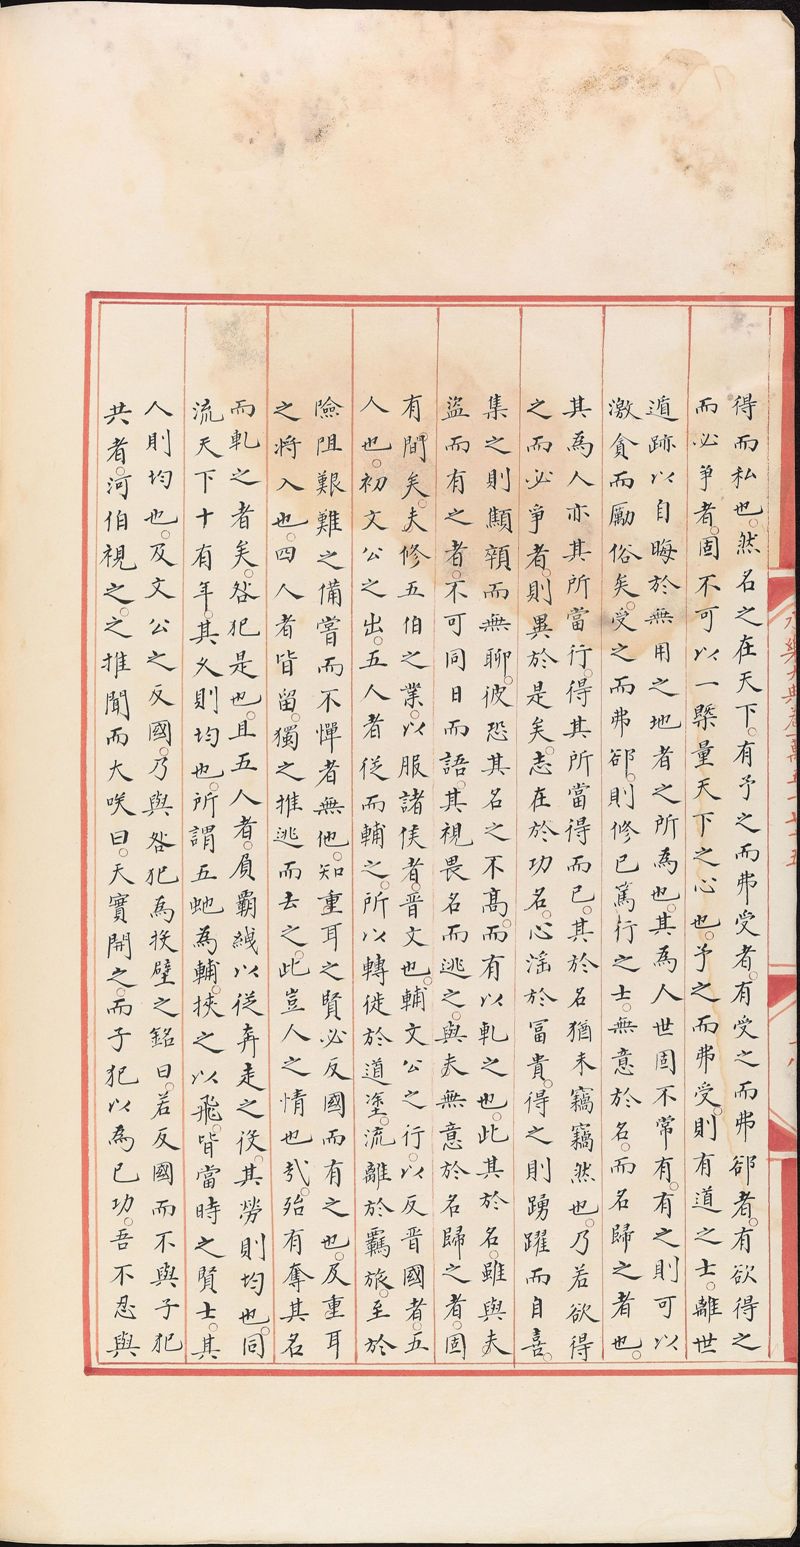 得而私也。然名之在天下。有予之而弗受者。有受之而弗郤者。有欲得之
而必爭者。固不可以一槩量天下之心也。予之而弗受。則有道之士。離世
遁跡以自晦於無用之地者之所為也。其為人世固不常有。有之則可以
激貪而厲俗矣。受之而弗郤。則修已篤行之士。無意於名。而名歸之者也。
其為人亦其所當行。得其所當得而已。其於名猶未竊竊然也。乃若欲得
之而必爭者。則異於是矣。志在於功名。心滛於冨貴。得之則踴躍而自喜。
集之則顦顇而無聊。彼恐其名之不髙。而有以軋之也。此其於名。雖與夫
盜而有之者。不可同日而語。其視畏名而逃之。與夫無意於名歸之者。固
有間矣。夫修五伯之業。以服諸侯者。晉文也。輔文公之行。以反晋國者。五
人也。初文公之出。五人者從而輔之。所以轉徙於道塗。流離於羈旅。至於
險阻艱難之備嘗而不憚者無他。知重耳之賢必反國而有之也。及重耳
之將入也。四人者皆留。獨之推逃而去之。此豈人之情也㢤。殆有奪其名
而軋之者矣。咎犯是也。且五人者。負覊絏以從奔走之役。其勞則均也。同
流天下十有年。其义則均也。所謂五虵為輔。挾之以飛。皆當時之賢士。其
人則均也。及文公之反國。乃與咎犯為投璧之銘曰。若反國而不與子犯
共者。河伯視之。之推聞而大咲曰。天實開之。而子犯以為已功。吾不忍與